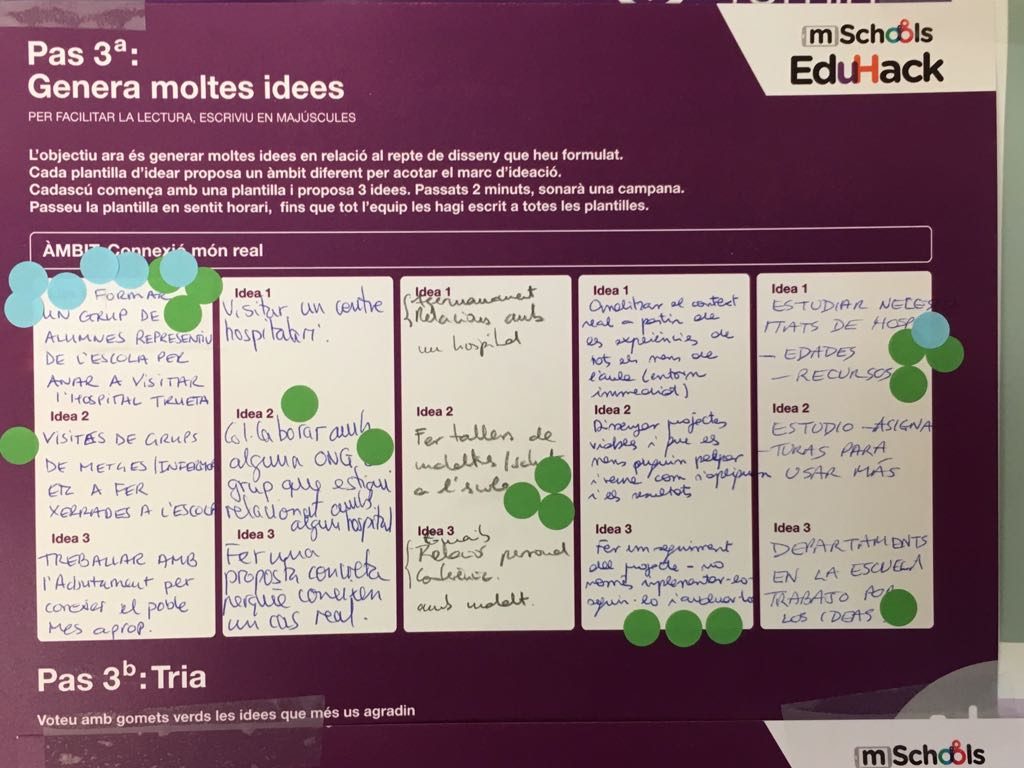 Pas 3ª:
Genera moltes idees
PER FACILITAR LA LECTURA, ESCRIVIU EN MAJÚSCULES
mSchools
EduHack
L'objectiu ara és generar moltes idees en relació al repte de disseny que heu formulat.
Cada plantilla d'idear proposa un àmbit diferent per acotar el marc d'ideació.
Cadascú comença amb una plantilla i proposa 3 idees. Passats 2 minuts, sonarà una campana.
Passeu la plantilla en sentit horari, fins que tot l'equip les hagi escrit a totes les plantilles.
ÀMBIT: Connexió món real
FORMAR
UN GRUP DE
ALUMNES REPRESENTIU
DE L'ESCOLA PER
ANAR A VISITAR
l'HOSPITAL TRUETA
Idea 2
VISITES DE GRUPS
DE METGES/INFERMER
ETC A FER
XERRADES A L'ESCOLA
Idea 3
TREBALLAR AMB
l'Adjuntament per
coneixer el poble
Més aprop.
Idea 1
Visitar un centre
hospitalari.
Idea 2
Col·laborar amb
alguna ONG o
grup que estigui
relacionat amb
algun hospital
Idea 3
Fer una
proposta concreta
perquè coneixen
un cas real.
Idea 1
Agermanament
Relacions amb
un hospital
Idea 2
Fer tallers de
malalties/salut
a l'escola
Idea 3
Emails
Relació personal
amb malalt.
Idea 1
Analitzar el context
real a partir de
les experiències de
tots els nens de
l'aula (entorn
immediat)
Idea 2
Dissenyar projectes
viables i que els
nens puguin palpar
i veure com s'apliquen
i els resultats
Idea 3
Fer un seguiment
del projecte - no
només implementar-lo
seguir-lo i avaluar-lo
Idea 1
ESTUDIAR NECES
ITATS DE HOSPI
- EDADES
- RECURSOS
Idea 2
ESTUDIO - ASIGNA
-TURAS PARA
USAR MÁS
Idea 3
DEPARTAMENTS
EN LA ESCUELA
TRABAJO POR
LOS IDEAS
Pas 3ᵇ: Tria
Voteu amb gomets verds les idees que més us agradin
mSchools